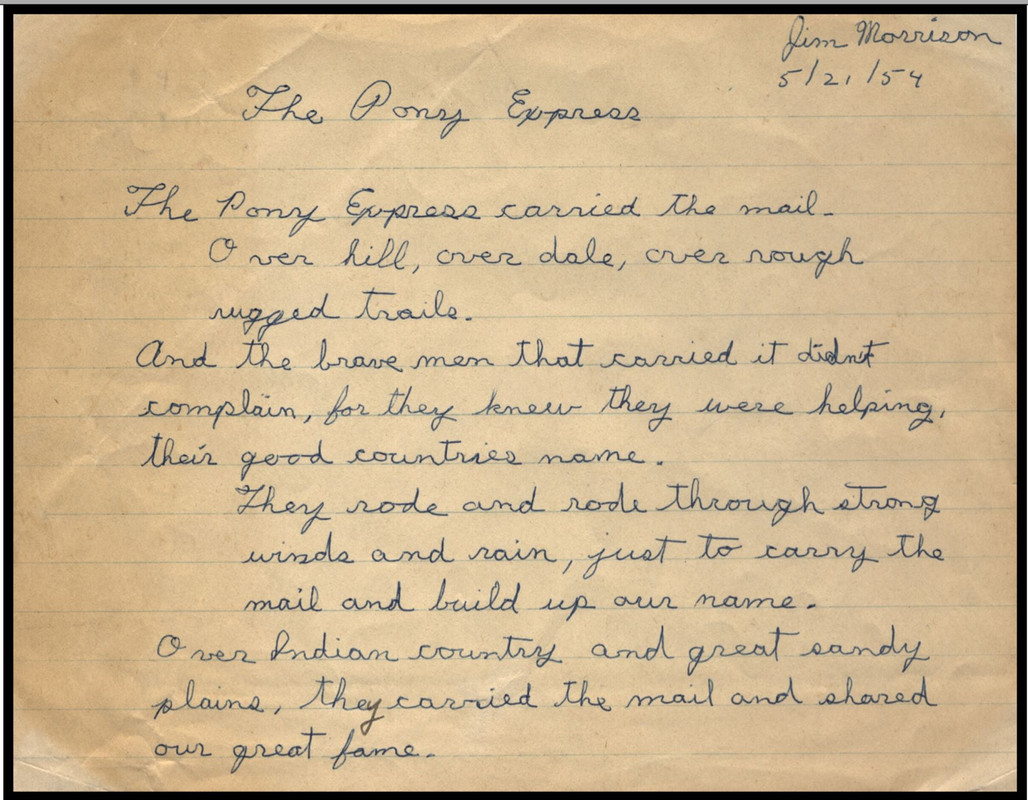 Jim Morrison
5/21/54
The Pony Express
The Pony Express carried the mail.
Over hill, over dale, over rough
rugged trails.
And the brave men that carried it didn't
complain, for they knew they were helping,
their good countries name.
They rode and rode through strong
winds and rain, just to carry the
mail and build up our name.
Over Indian country and great sandy
plains, they carried the mail and shared
our great fame.